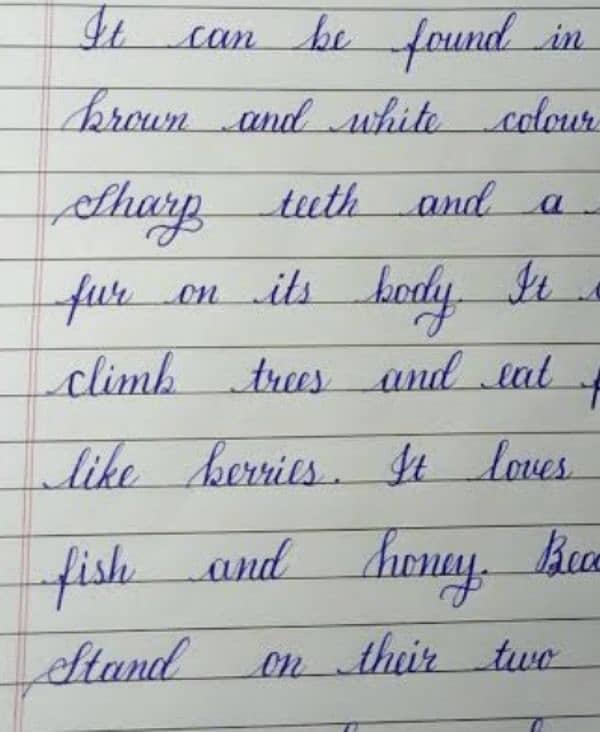 It can be found in
brown and white colour
Sharp teeth and a
fur on its body. It
climb trees and eat
like berries. It loves
fish and honey.
Stand on their two